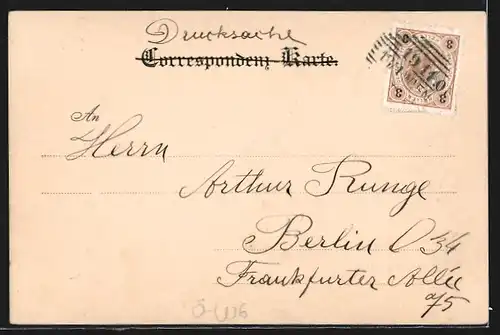 Drucksache
Correspondenz-Karte.
3 3
3 3
An
Herrn
Arthur Runge
Berlin O 34
Frankfurter Allée
75